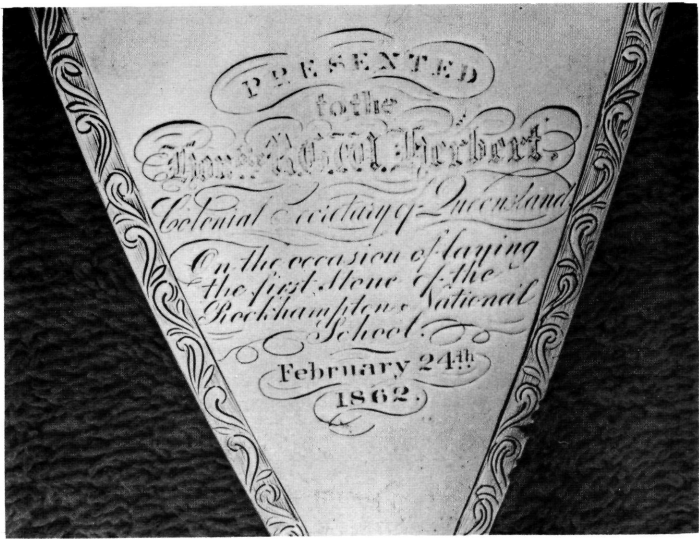 PRESENTED
to the
Honble R.G.W. Herbert.
Colonial Secretary of Queensland,
On the occasion of laying
the first Stone of the
Rockhampton National
School.
February 24th
1862.